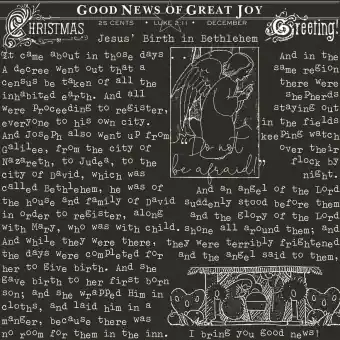 GOOD NEWS OF GREAT JOY
25 CENTS • LUKE 2:11 • DECEMBER
CHRISTMAS
Greeting!
Jesus' Birth in Bethlehem
It came about in those days
A decree went out that a
census be taken of all the
inhabited earth. And all
were Proceeding to register,
everyone to his own city.
And Joseph also went up from
Galilee, from the city of
Nazareth, to Judea, to the
city of David, which was
called Bethlehem, he was of
the house and family of David
in order to register, along
with Mary, who was with child.
And while they were there,
the days were completed for
her to give birth. And she
gave birth to her first born
son; and she wrapped Him in
cloths, and laid him in a
manger, because there was
no room for them in the inn.
"Do not
be afraid!"
And in the
same region
there were
shepherds
staying out
in the fields
keeping watch
over their
flock by
night.
And an angel of the Lord
suddenly stood before them
and the glory of the Lord
shone all around them; and
they were terribly frightened
and the angel said to them,
I bring you good news!